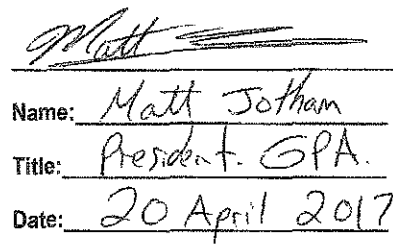 Matt
Name: Matt Jotham
Title: President. GPA.
Date: 20 April 2017